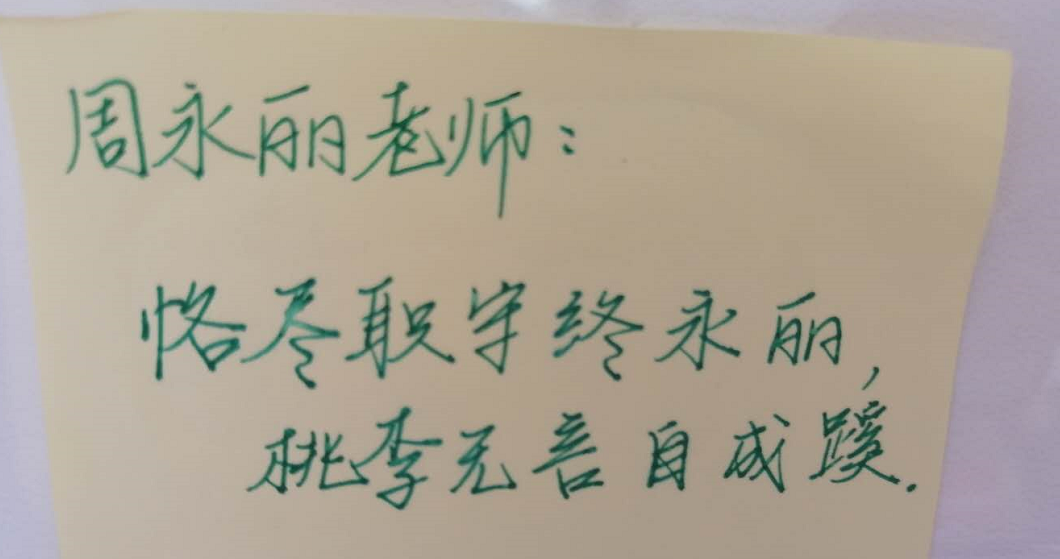 周永丽老师：
恪尽职守终永丽，
桃李无言自成蹊.